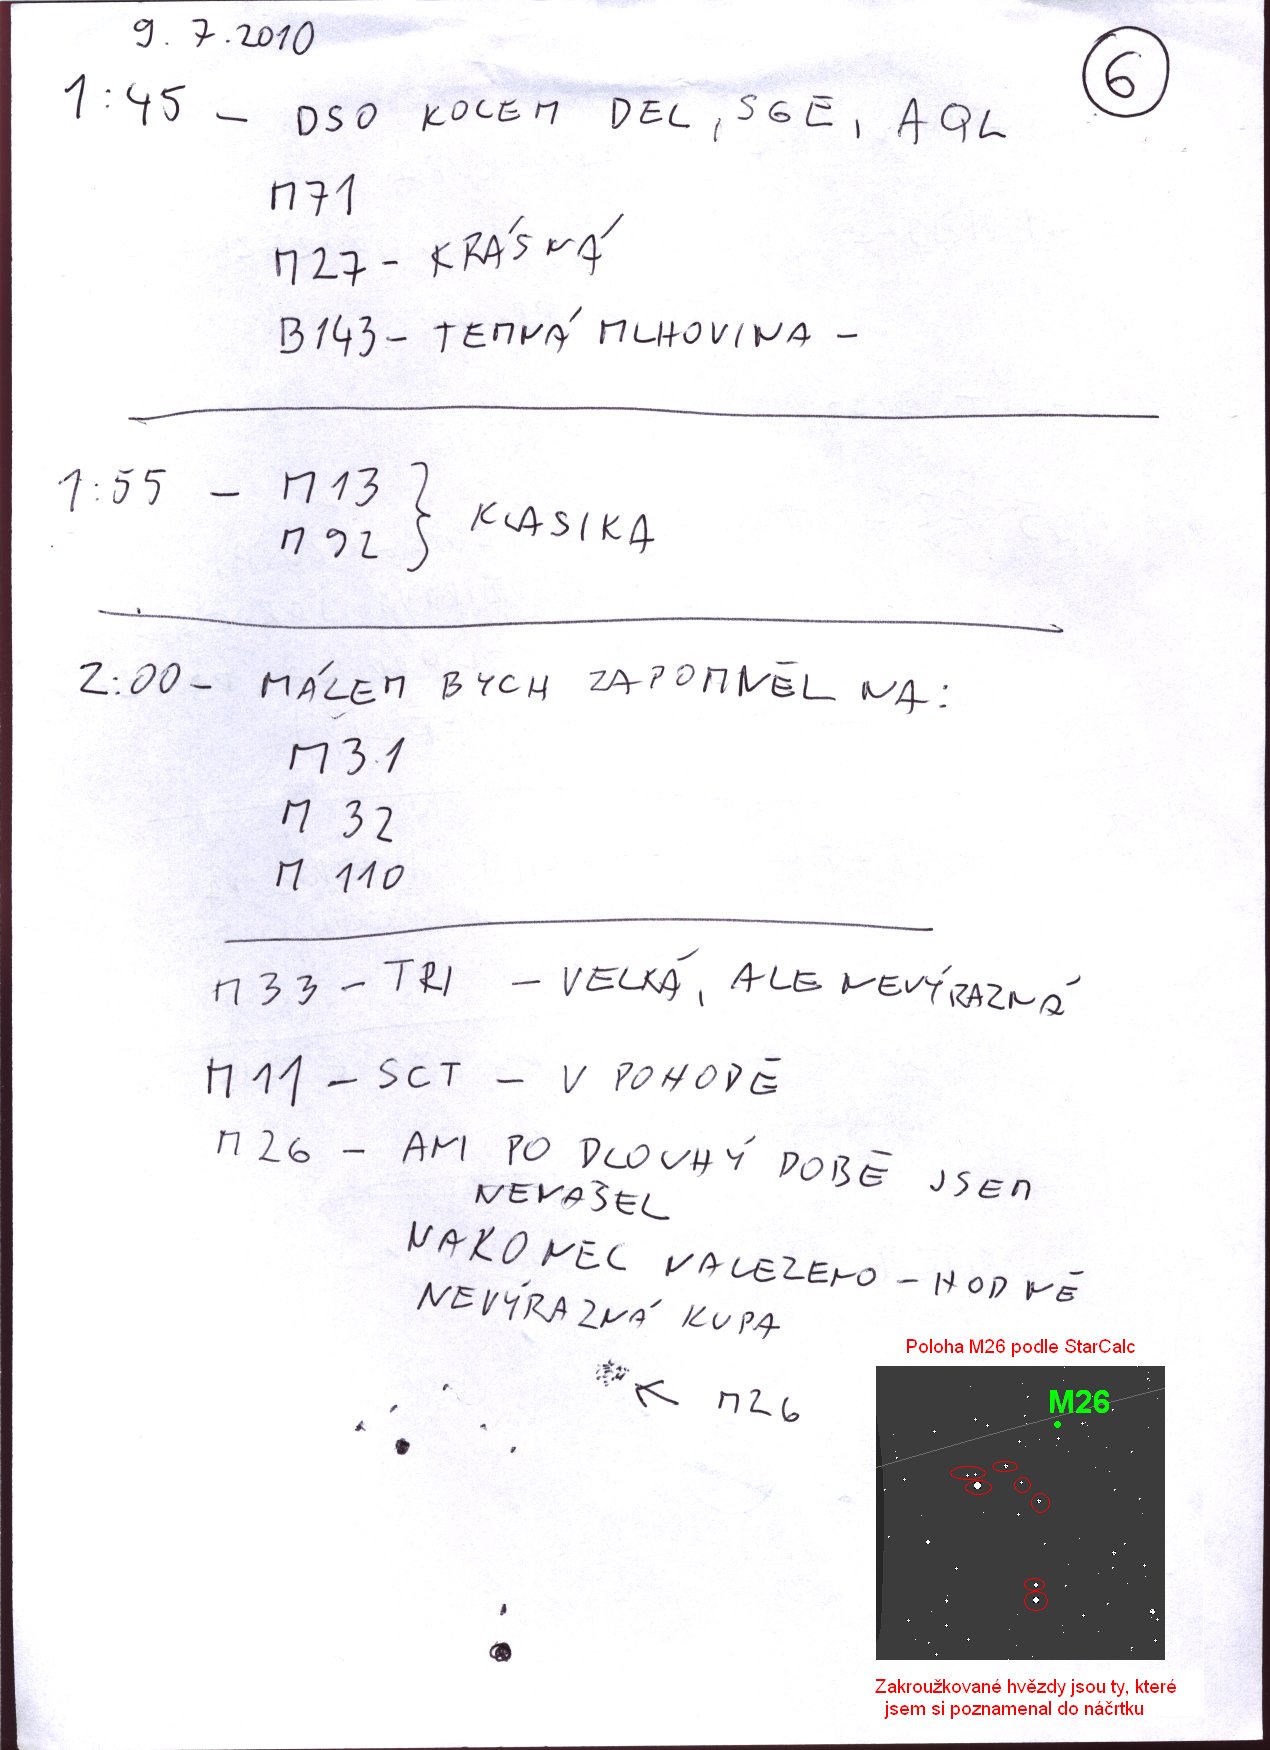 9. 7. 2010
6
1:45 - DSO KOLEM DEL, SGE, AQL
M71
M27 - KRÁSNÁ
B143 - TEMNÁ MLHOVINA -
1:55 - M13
M92 } KLASIKA
2:00 - MÁLEM BYCH ZAPOMNĚL NA:
M31
M 32
M 110
M33 - TRI - VELKÁ, ALE NEVÝRAZNÁ
M11 - SCT - V POHODĚ
M26 - ANI PO DLOUHÝ DOBĚ JSEM
NENAŠEL
NAKONEC NALEZENO - HODNĚ
NEVÝRAZNÁ KUPA
M26
Poloha M26 podle StarCalc
M26
Zakroužkované hvězdy jsou ty, které
jsem si poznamenal do náčrtku